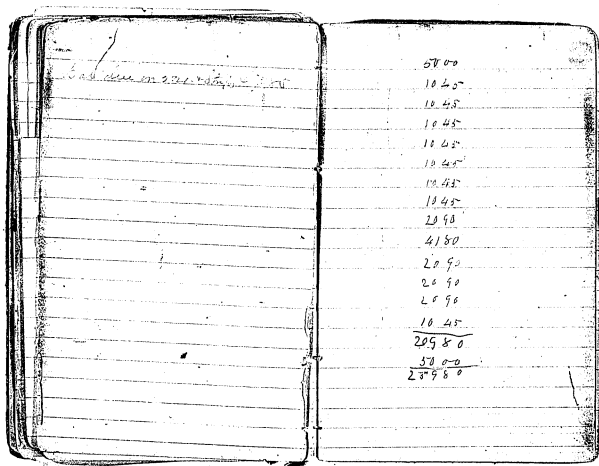 50 00
10 45
10 45
10 45
10 45
10 45
10 45
10 45
20 90
41 80
20 90
20 90
20 90
10 45
209 80
50 00
259 80